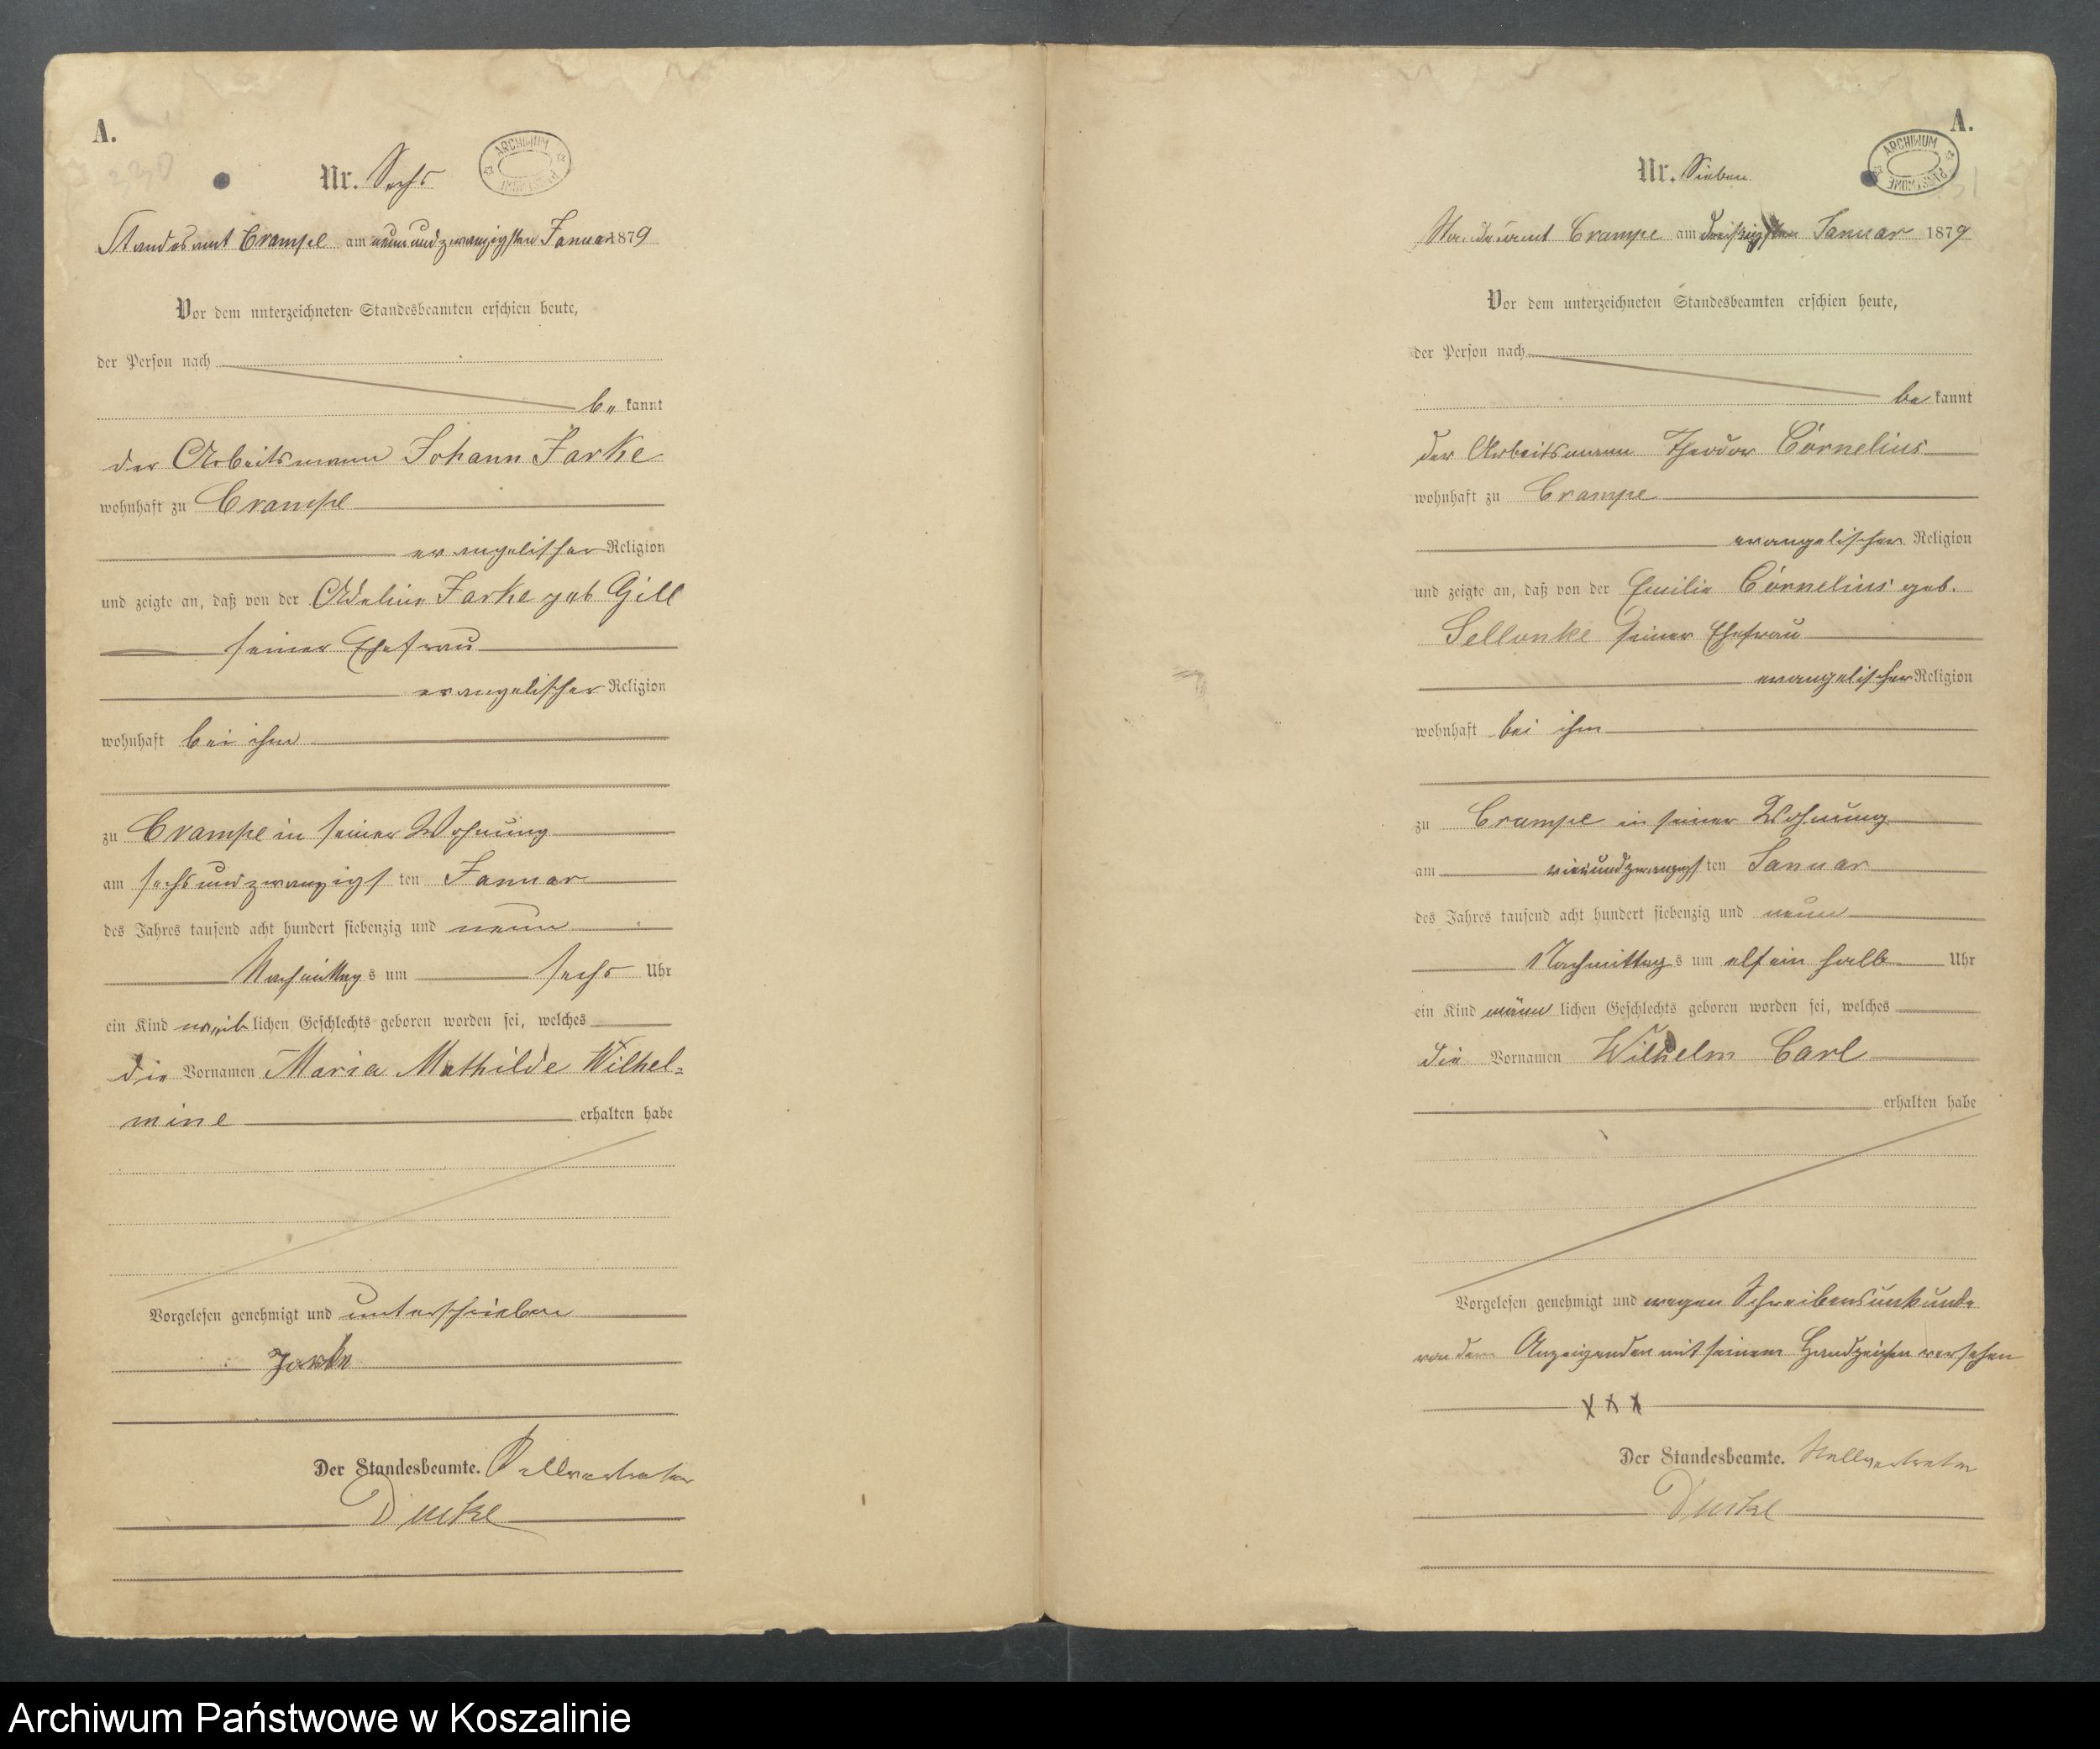 A.
330
Nr. Sechs
ARCHIWUM PAŃSTWOWE
Standesamt Crampe am neunundzwanzigsten Januar 1879
Vor dem unterzeichneten Standesbeamten erschien heute,
der Person nach
be kannt
der Arbeitsmann Johann Jarke
wohnhaft zu Crampe
evangelischer Religion
und zeigte an, daß von der Adeline Jarke geb Gill
seiner Ehefrau
evangelischer Religion
wohnhaft bei ihm
zu Crampe in seiner Wohnung
am sechsundzwanzigs ten Januar
des Jahres tausend acht hundert siebenzig und neun
Nachmittag s um sechs Uhr
ein Kind weib lichen Geschlechts geboren worden sei, welches
die Vornamen Maria Mathilde Wilhel=
mine erhalten habe
Vorgelesen genehmigt und unterschrieben
Jarke
Der Standesbeamte. Stellvertreter
Ducke
A.
Nr. Sieben
ARCHIWUM PAŃSTWOWE
Standesamt Crampe am dreißigsten Januar 1879
Vor dem unterzeichneten Standesbeamten erschien heute,
der Person nach
be kannt
der Arbeitsmann Theodor Cornelius
wohnhaft zu Crampe
evangelischer Religion
und zeigte an, daß von der Emilie Cornelius geb.
Sellonke seiner Ehefrau
evangelischer Religion
wohnhaft bei ihm
zu Crampe in seiner Wohnung
am vierundzwanzigs ten Januar
des Jahres tausend acht hundert siebenzig und neun
Nachmittag s um elf ein halb Uhr
ein Kind männ lichen Geschlechts geboren worden sei, welches
die Vornamen Wilhelm Carl
erhalten habe
Vorgelesen genehmigt und wegen Schreibensunkunde
von dem Anzeigenden mit seinem Handzeichen versehen
X X X
Der Standesbeamte. Stellvertreter
Ducke
Archiwum Państwowe w Koszalinie